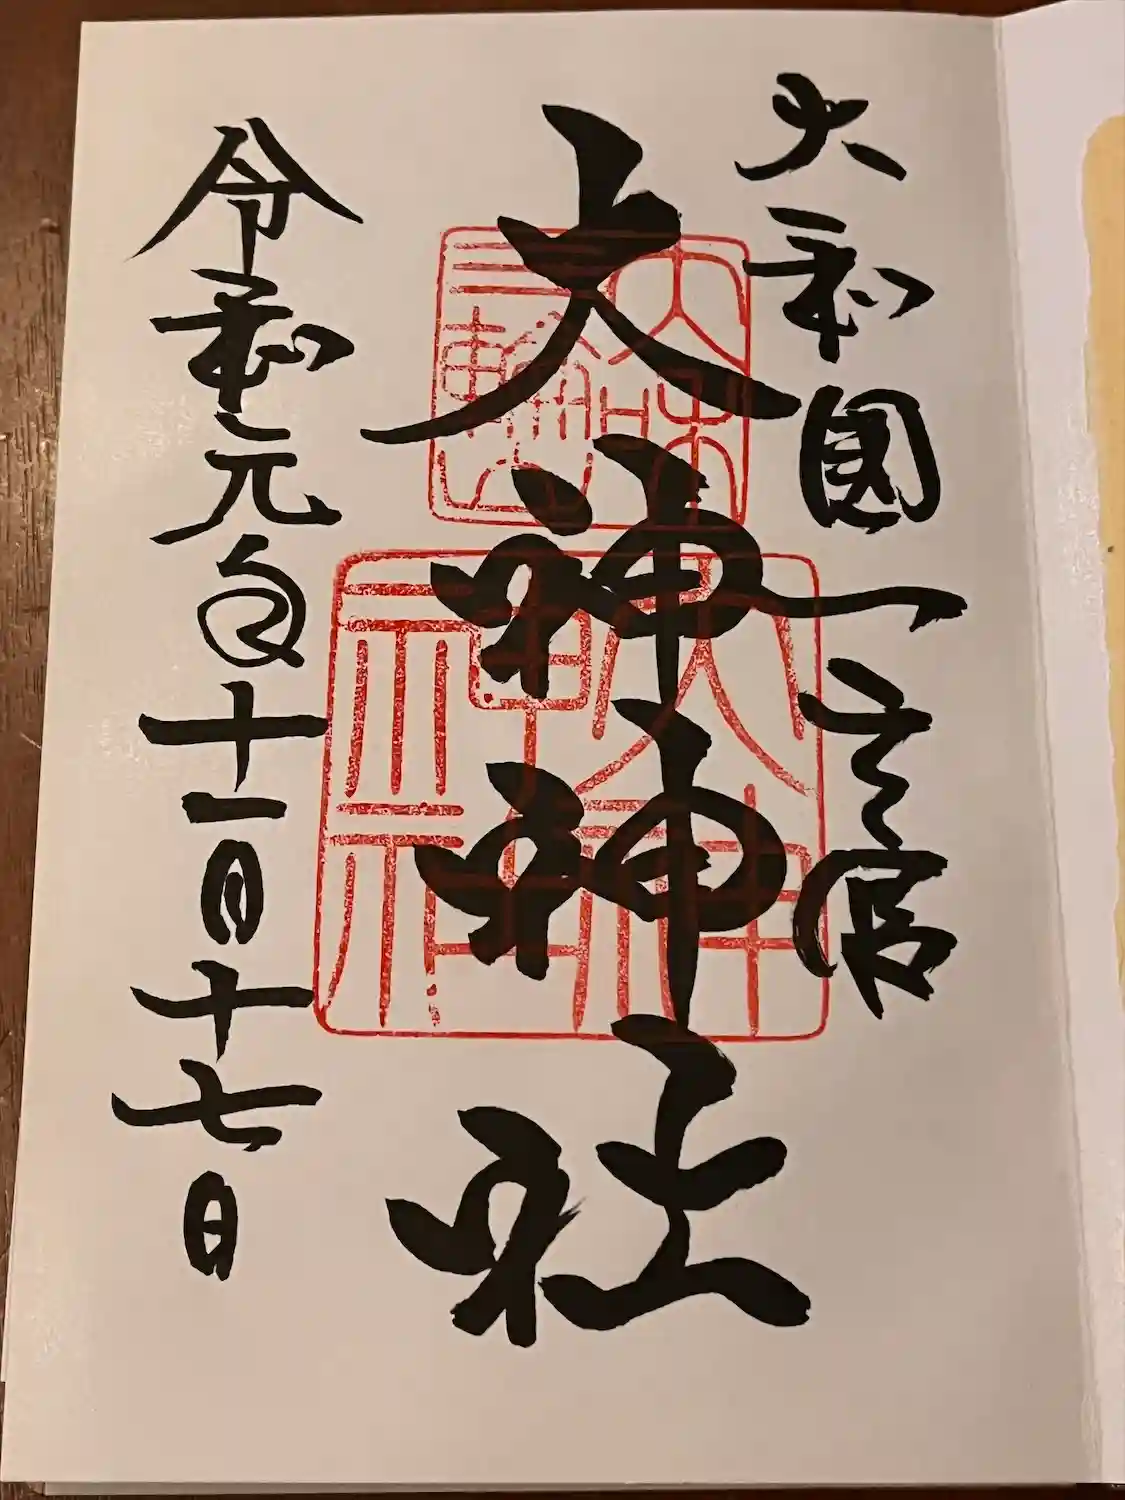 大和國一之宮
大神神社
令和元年十一月十七日
大和
三輪山
大神
神社